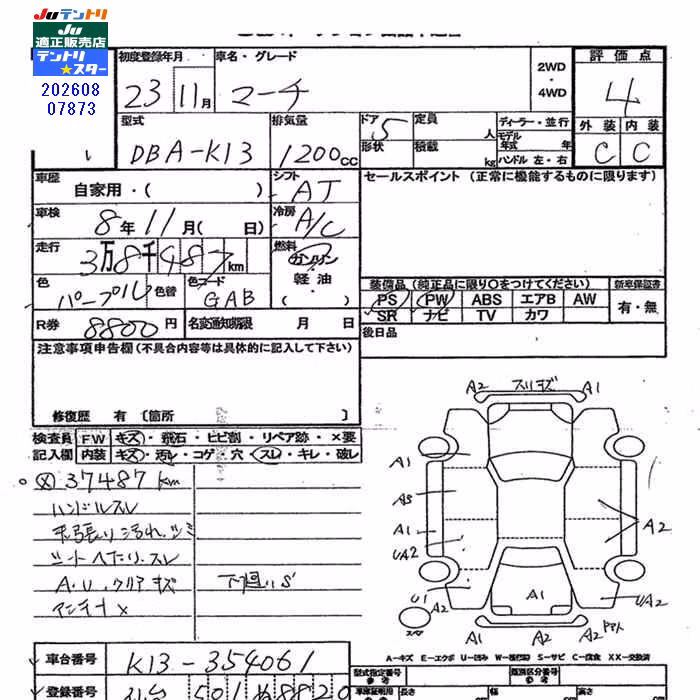 Juテントリ
Ju
適正販売店
テントリ
★スター
202608
07873
初度登録年月
車名・グレード
2WD
・
4WD
評価点
23 11月
マーチ
4
型式
排気量
ドア 5
定員 人
ディーラー・並行
外装 内装
DBA-K13
1200cc
形状
積載 kg
モデル年式 年
ハンドル 左・右
C C
車歴
自家用・( )
シフト
AT
セールスポイント (正常に機能するものに限ります)
車検
8年11月( 日)
冷房
A/C
走行
3万8千487km
燃料
ガソリン
軽油
( )
色
パープル
色替
色コード
GAB
装備品(純正品に限り○をつけてください)
新車保証書
PS PW ABS エアB AW
有・無
SR ナビ TV カワ
R券
8800円
名変通知期限 月 日
後日品
注意事項申告欄(不具合内容等は具体的に記入して下さい)
修復歴 有〔箇所 〕
検査員
記入欄
FW キズ・飛石・ヒビ割・リペア跡・×要
内装 キズ・汚れ・コゲ・穴・スレ・キレ・破レ
37487km
ハンドルスレ
天張り汚れ、シミ
シートヘたり、スレ
A・U、クリアキズ
下廻りS
アンテナ×
A2 スリキズ A1
A1
AS
A1
UA2
A2
U1
A2
A1
UA2
A1 A2 A2
A-キズ E-エクボ U-凹み W-補修跡 S-サビ C-腐食 XX-交換済
車台番号
K13-354061
型式指定番号
参考
類別区分番号
参考
登録番号
仙台 501
8820